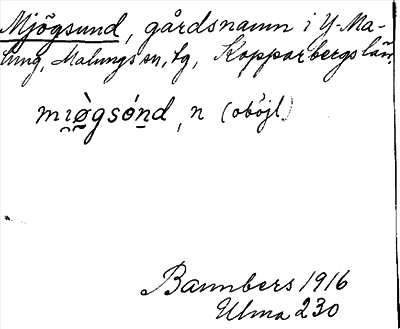 Mjögsund, gårdsnamn i Y-Ma-
lung, Malungs sn, tg, Kopparbergs län.
mıø̀gsónd, n (oböjl.)
Bannbers 1916
Ulma 230